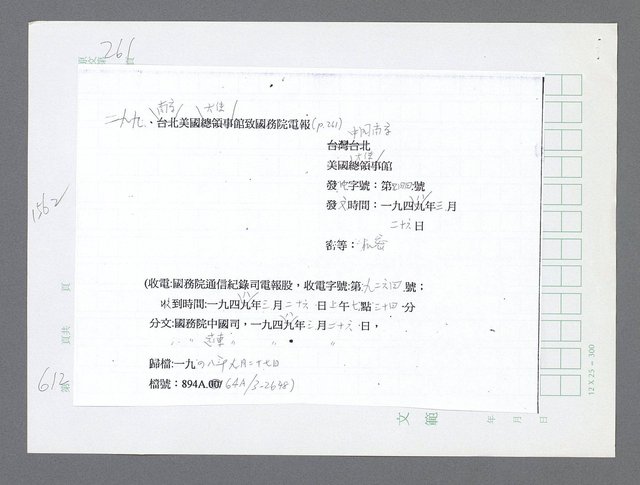 261
二九九、台北美國總領事館致國務院電報(p.261)
南京 大使
中國南京
台灣台北
大使
美國總領事館
發文字號：第 號
發文時間：一九四九年三月
二十六日
密等：機密
(收電:國務院通信紀錄司電報股，收電字號:第九二六四號；
收到時間:一九四九年三月二十六日上午七點三十四分
分文:國務院中國司，一九四九年三月二十六日，
〃 〃 遠東 〃 〃 〃
歸檔:一九四八年九月二十七日
檔號：894A.00/64A/3-2648)
1562
頁
頁共
612
第
12 X 25 = 300
文 範
年 月 日